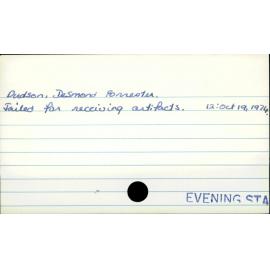 Dudson, Desmond Forrester.
Jailed for receiving artifacts. 12: Oct 19, 1974
EVENING STA